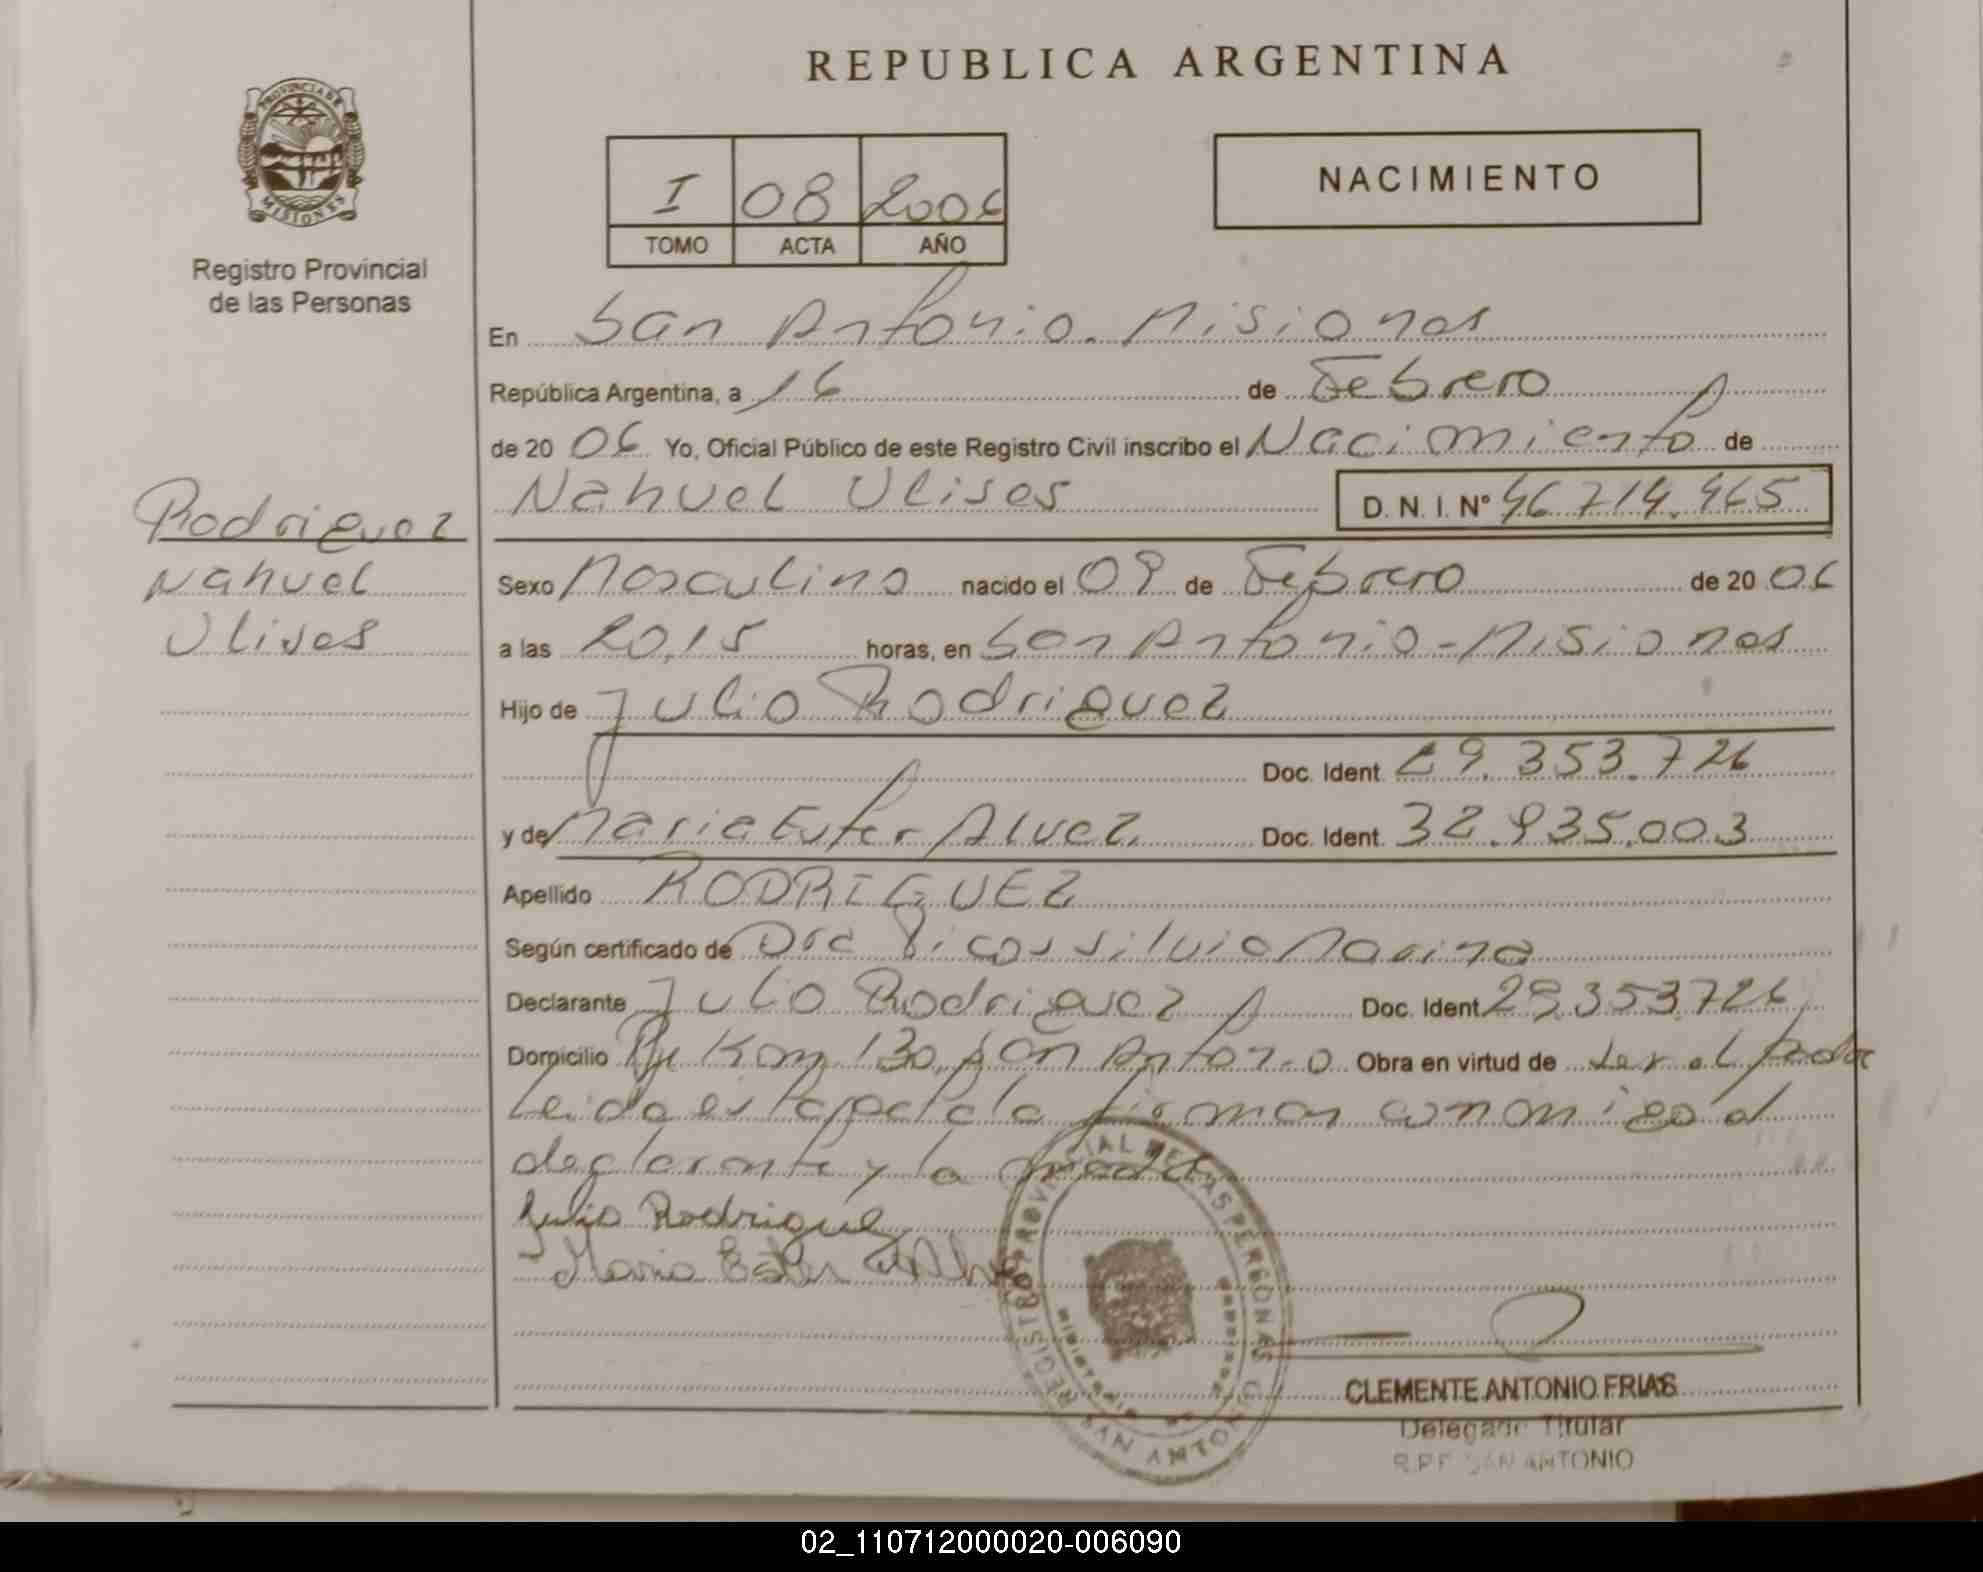 REPUBLICA ARGENTINA
PROVINCIA DE
MISIONES
Registro Provincial
de las Personas
I 08 2006
TOMO ACTA AÑO
NACIMIENTO
En San Antonio. Misiones
República Argentina, a 16 de Febrero
de 20 06 Yo, Oficial Público de este Registro Civil inscribo el Nacimiento de
Nahuel Ulises D. N. I. Nº 46.714.465
Rodriguez
Nahuel
Ulises
Sexo Masculino nacido el 09 de Febrero de 20 06
a las 20,15 horas, en San Antonio - Misiones
Hijo de Julio Rodriguez
Doc. Ident. 29.353.726
y de Maria Ester Alvez Doc. Ident. 32.935.003
Apellido RODRIGUEZ
Según certificado de Dra Silvia Marina
Declarante Julio Rodriguez Doc. Ident. 29.353726
Domicilio Km 130, San Antonio Obra en virtud de ser el padre
Leida es firman conmigo el
declarante y la madre
Julio Rodriguez
Maria Ester
REGISTRO PROVINCIAL DE LAS PERSONAS
MINISTERIO DE
SAN ANTONIO
CLEMENTE ANTONIO FRIAS
Delegado Titular
R.P.P. SAN ANTONIO
02_110712000020-006090